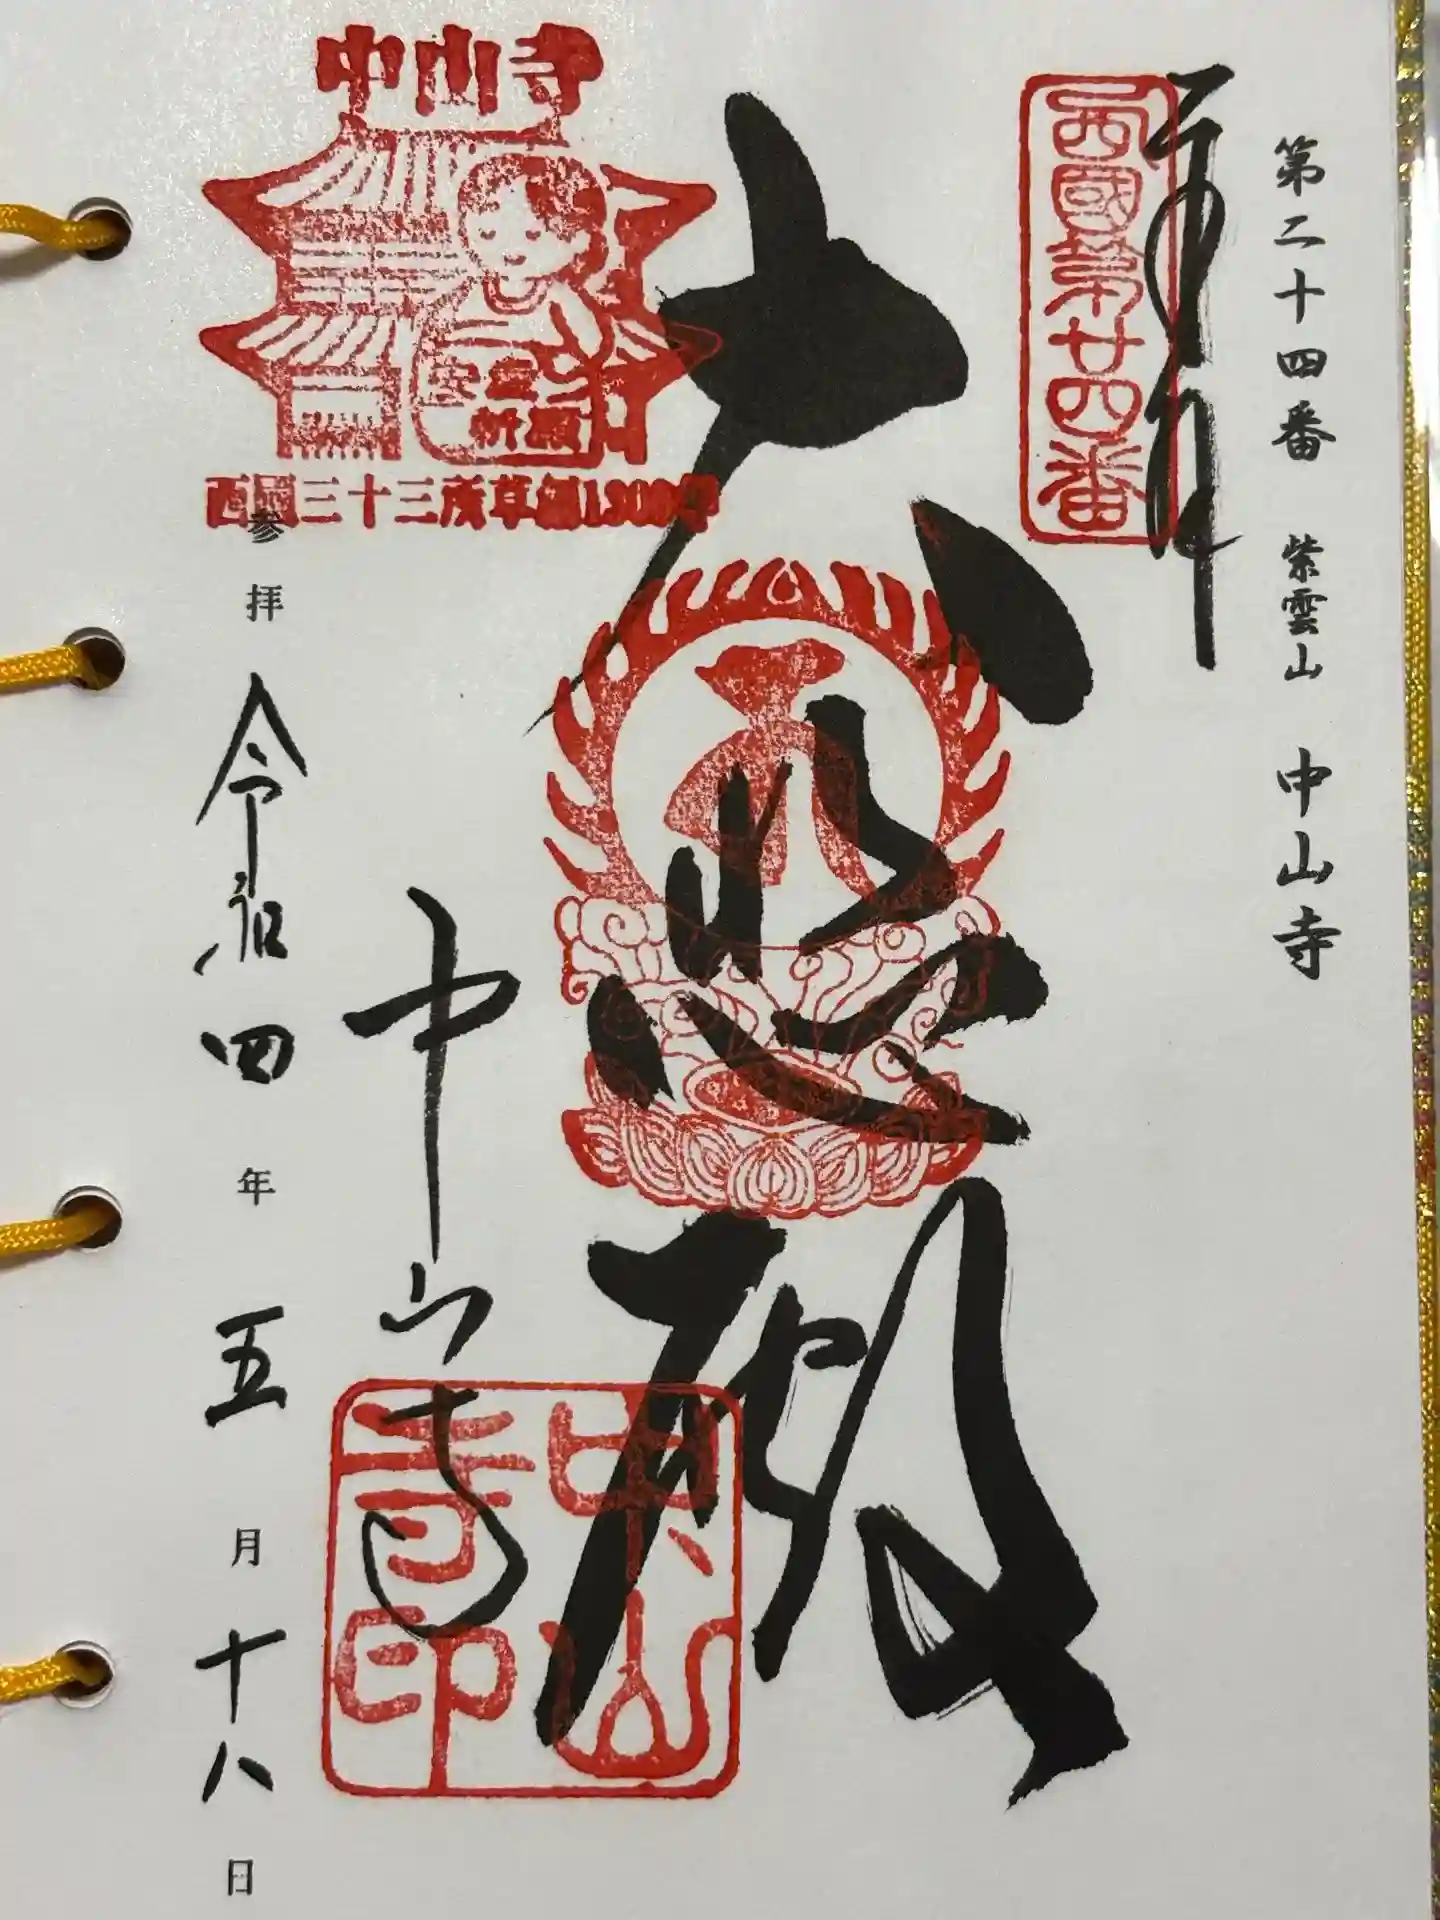 第二十四番 紫雲山 中山寺
奉拝
西國第廿四番
大悲殿
中山寺
中山寺印
中山寺
安産祈願
西國三十三所草創1300年
参拝 令和四年 五月十八日